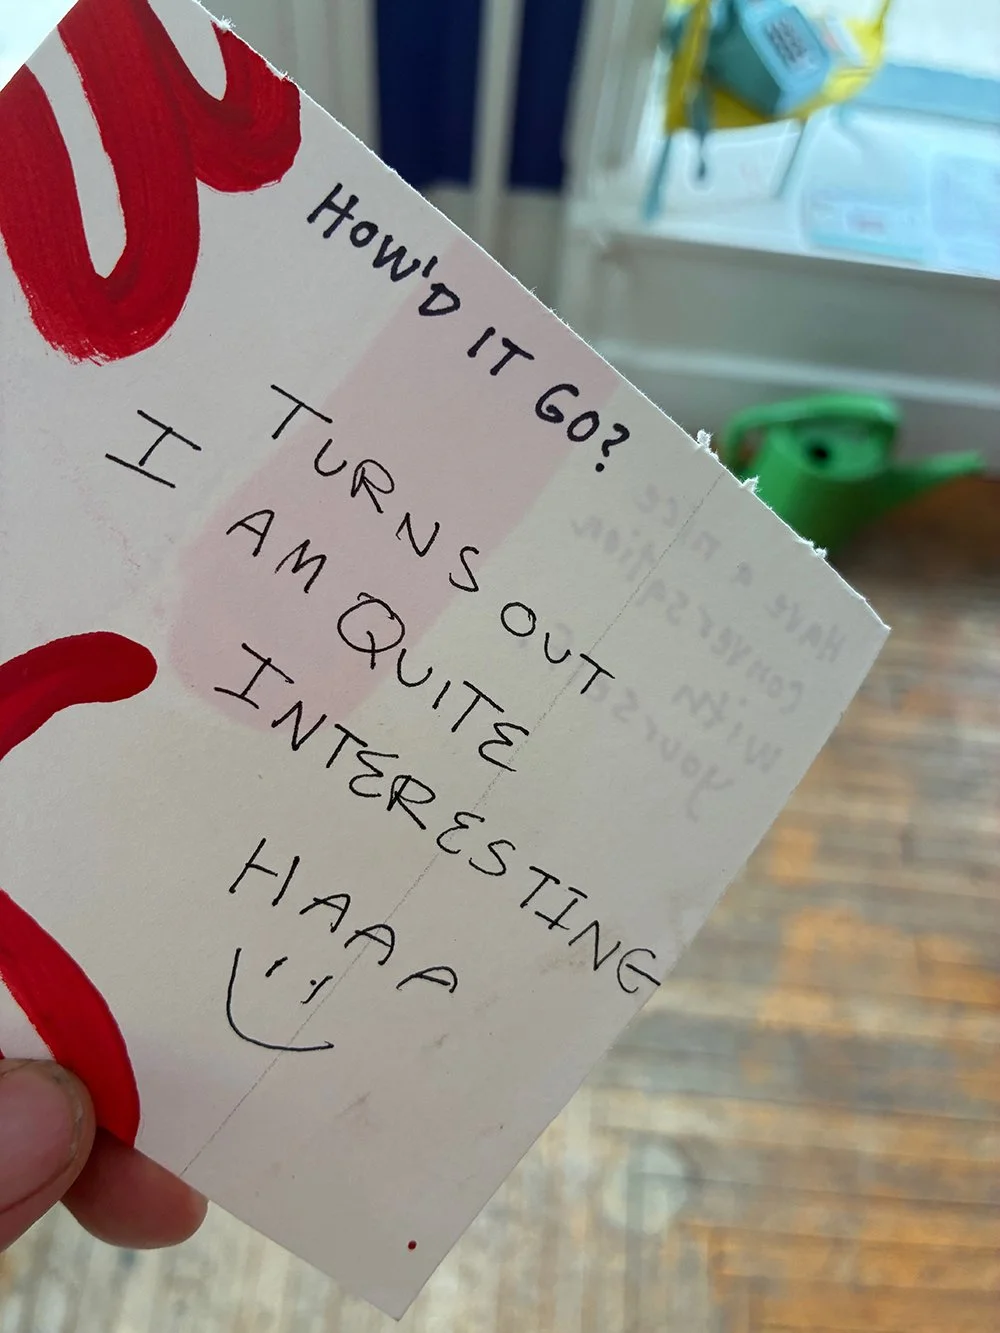 HOW'D IT GO?
TURNS OUT
I AM QUITE
INTERESTING
HAAA
HAVE a nice
conversation
with
yourself